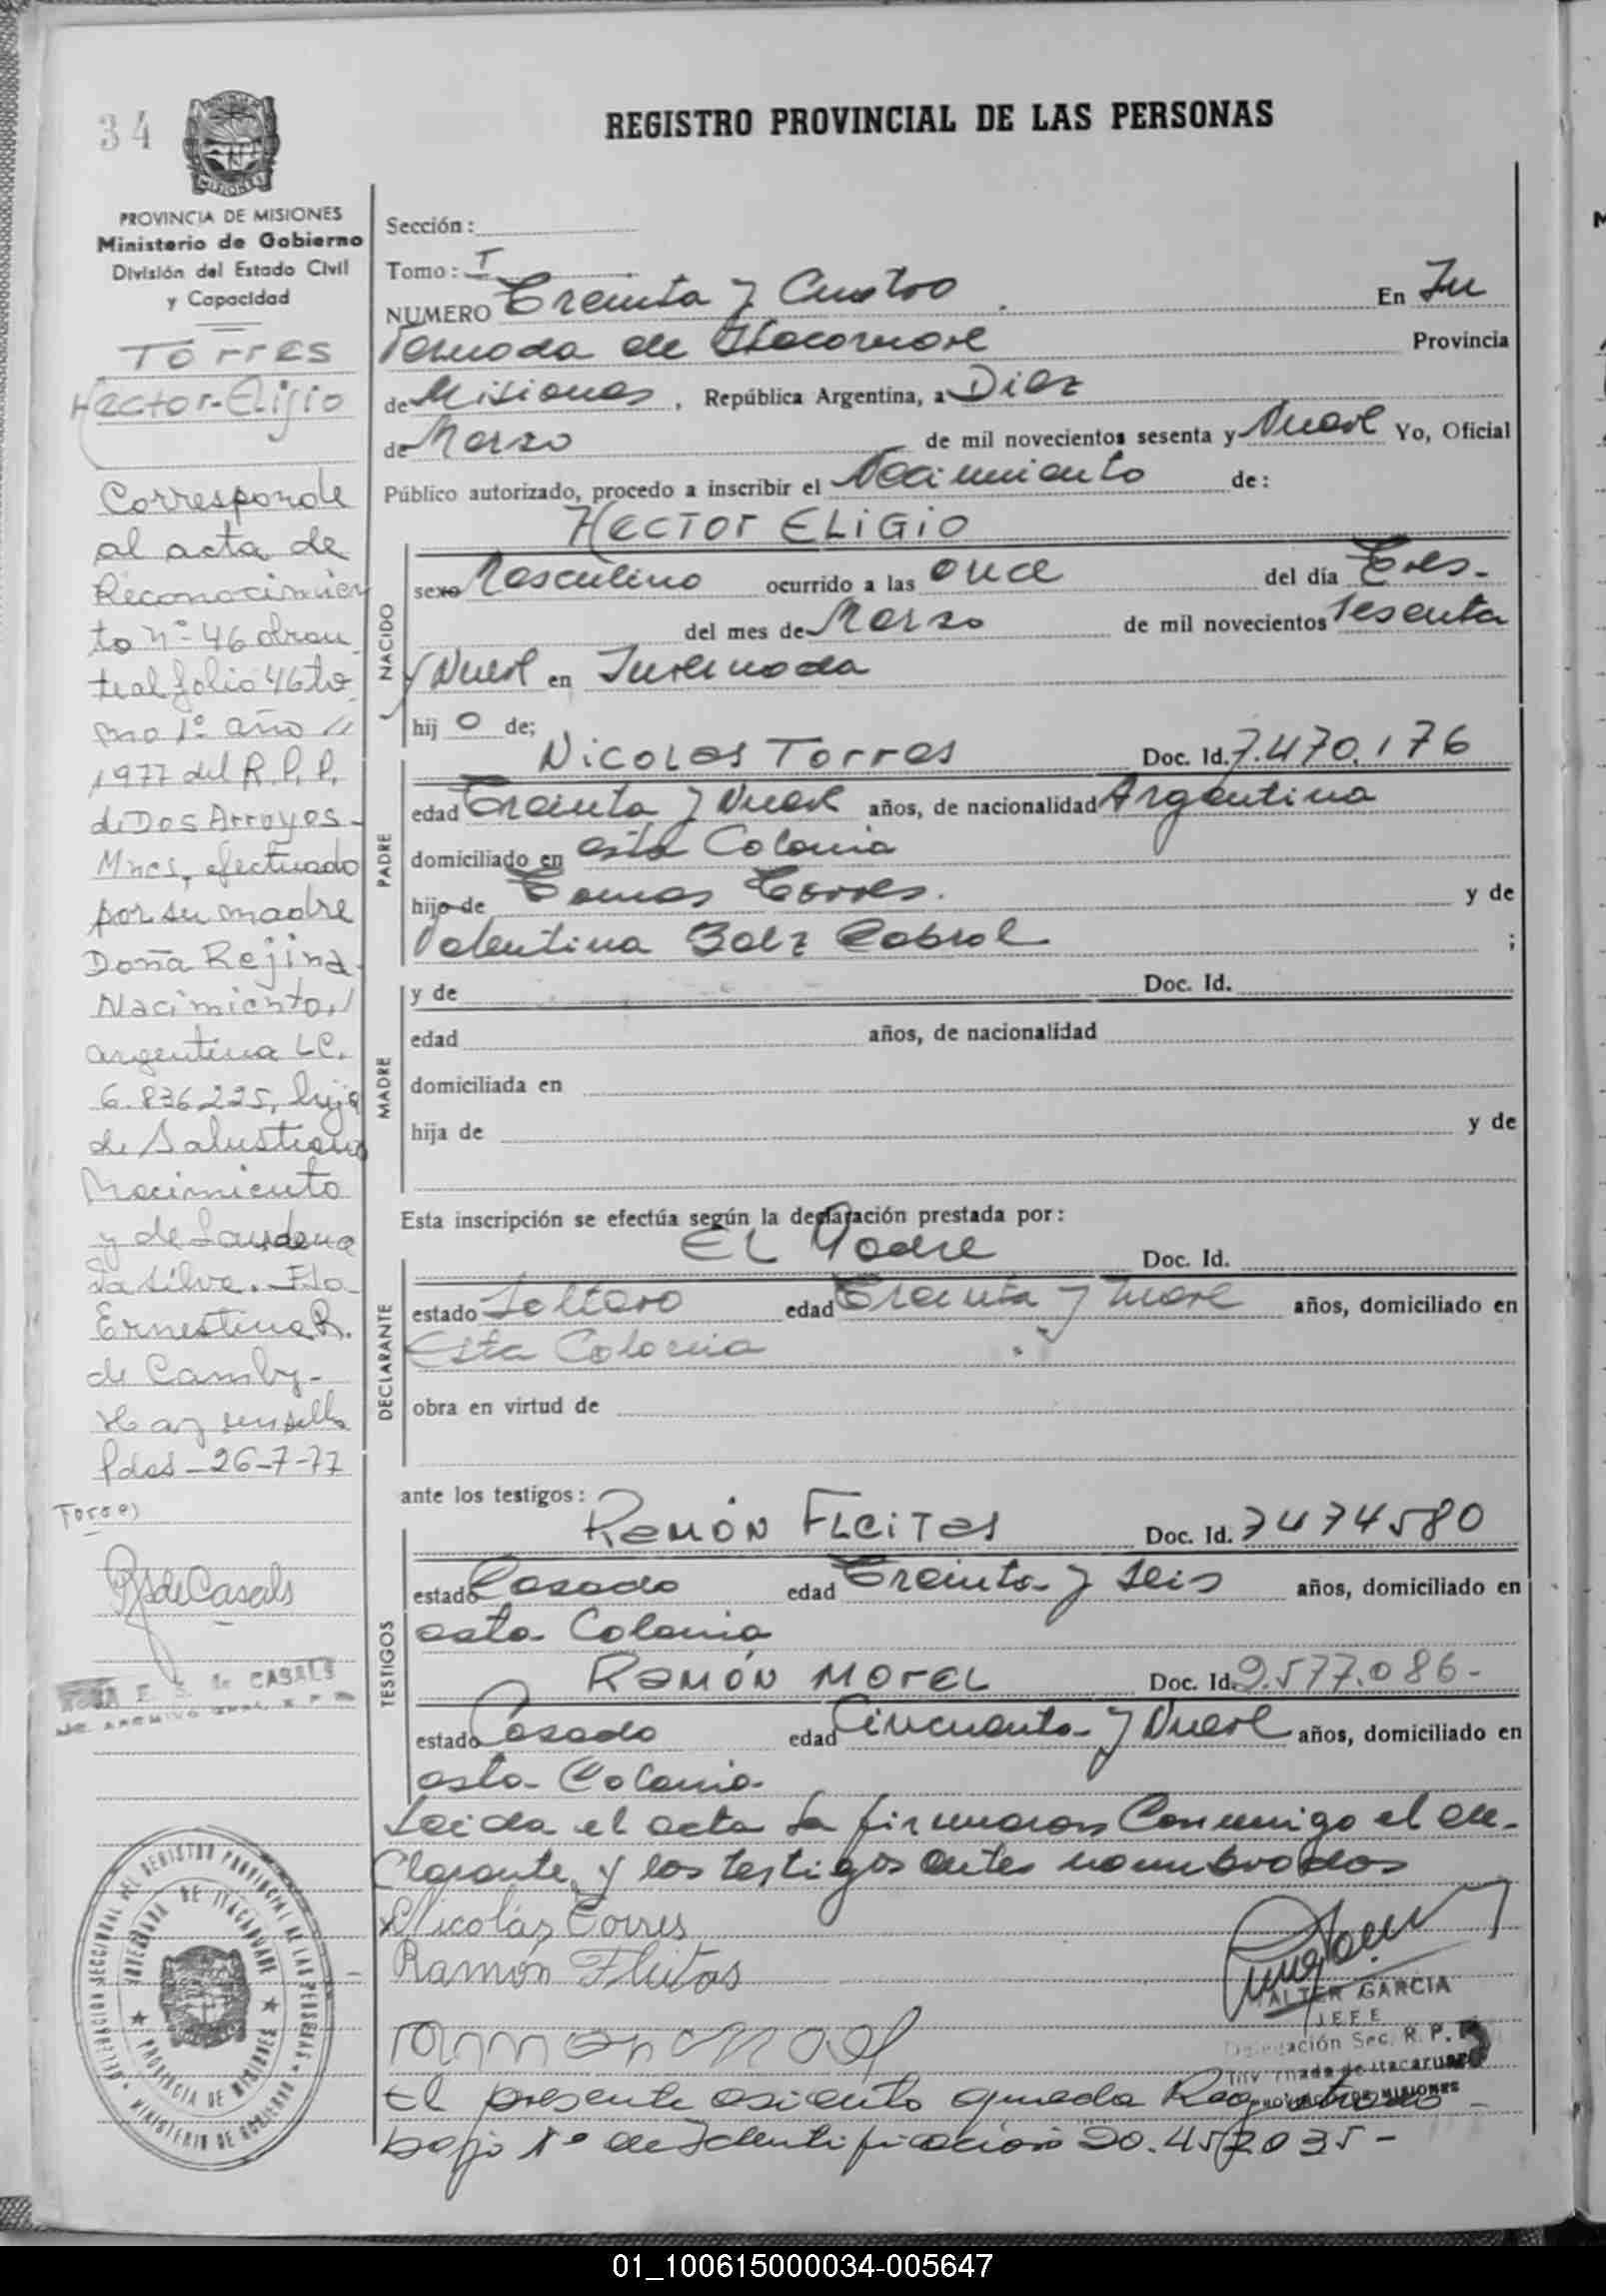 34
REGISTRO PROVINCIAL DE LAS PERSONAS
PROVINCIA DE MISIONES
Ministerio de Gobierno
División del Estado Civil
y Capacidad
TORRES
Hector-Eligio
Corresponde
al acta de
Reconocimien
to nº 46 obran
te al folio 46 to
mo 1º año
1977 del R.P.P.
de Dos Arroyos-
Mnes, efectuado
por su madre
Doña Rejina
Nacimiento,
argentina LC.
6.836.225, hija
de Salustiano
Nacimiento
y de
da Silva. Fdo
Ernestina R.
de Camby-
Hay un sello
Pdas-26-7-77
Torres
RSdeCasals
E. S. de CASALS
Sección:
Tomo: I
NUMERO Treinta y Cuatro En In
vernada de Itacaruare Provincia
de Misiones, República Argentina, a Diez
de Marzo de mil novecientos sesenta y Nueve Yo, Oficial
Público autorizado, procedo a inscribir el Nacimiento de:
HECTOR ELIGIO
NACIDO
sexo Masculino ocurrido a las once del día Tres-
del mes de Marzo de mil novecientos sesenta
y Nueve en Invernada
hijo de;
PADRE
Nicolas Torres Doc. Id. 7.470.176
edad Treinta y Nueve años, de nacionalidad Argentina
domiciliado en esta Colonia
hijo de Tomas Torres. y de
Valentina Baez Cabral ;
MADRE
y de Doc. Id.
edad años, de nacionalidad
domiciliada en
hija de y de
Esta inscripción se efectúa según la declaración prestada por:
DECLARANTE
EL Padre Doc. Id.
estado Soltero edad Treinta y Nueve años, domiciliado en
Esta Colonia
obra en virtud de
ante los testigos:
TESTIGOS
RAMÓN FLEITAS Doc. Id. 7474580
estado Casado edad Treinta y seis años, domiciliado en
esta Colonia
RAMÓN MOREL Doc. Id. 2.577.086-
estado Casado edad Cincuenta y Nueve años, domiciliado en
esta Colonia
Leida el acta la firmaron Conmigo el de-
Clarante y los testigos antes nombrados
Nicolás Torres
Ramón Fleitas
ramon morel
WALTER GARCIA
JEFE
Delegación Sec. R. P. P.
Invernada de Itacaruare
PROVINCIA DE MISIONES
El presente asiento queda Registrado
bajo Nº de Identificación 20.457.035-
DELEGACION SECCIONAL DEL REGISTRO PROVINCIAL DE LAS PERSONAS
MINISTERIO DE GOBIERNO
INVERNADA DE ITACARUARE
PROVINCIA DE MISIONES
01_100615000034-005647